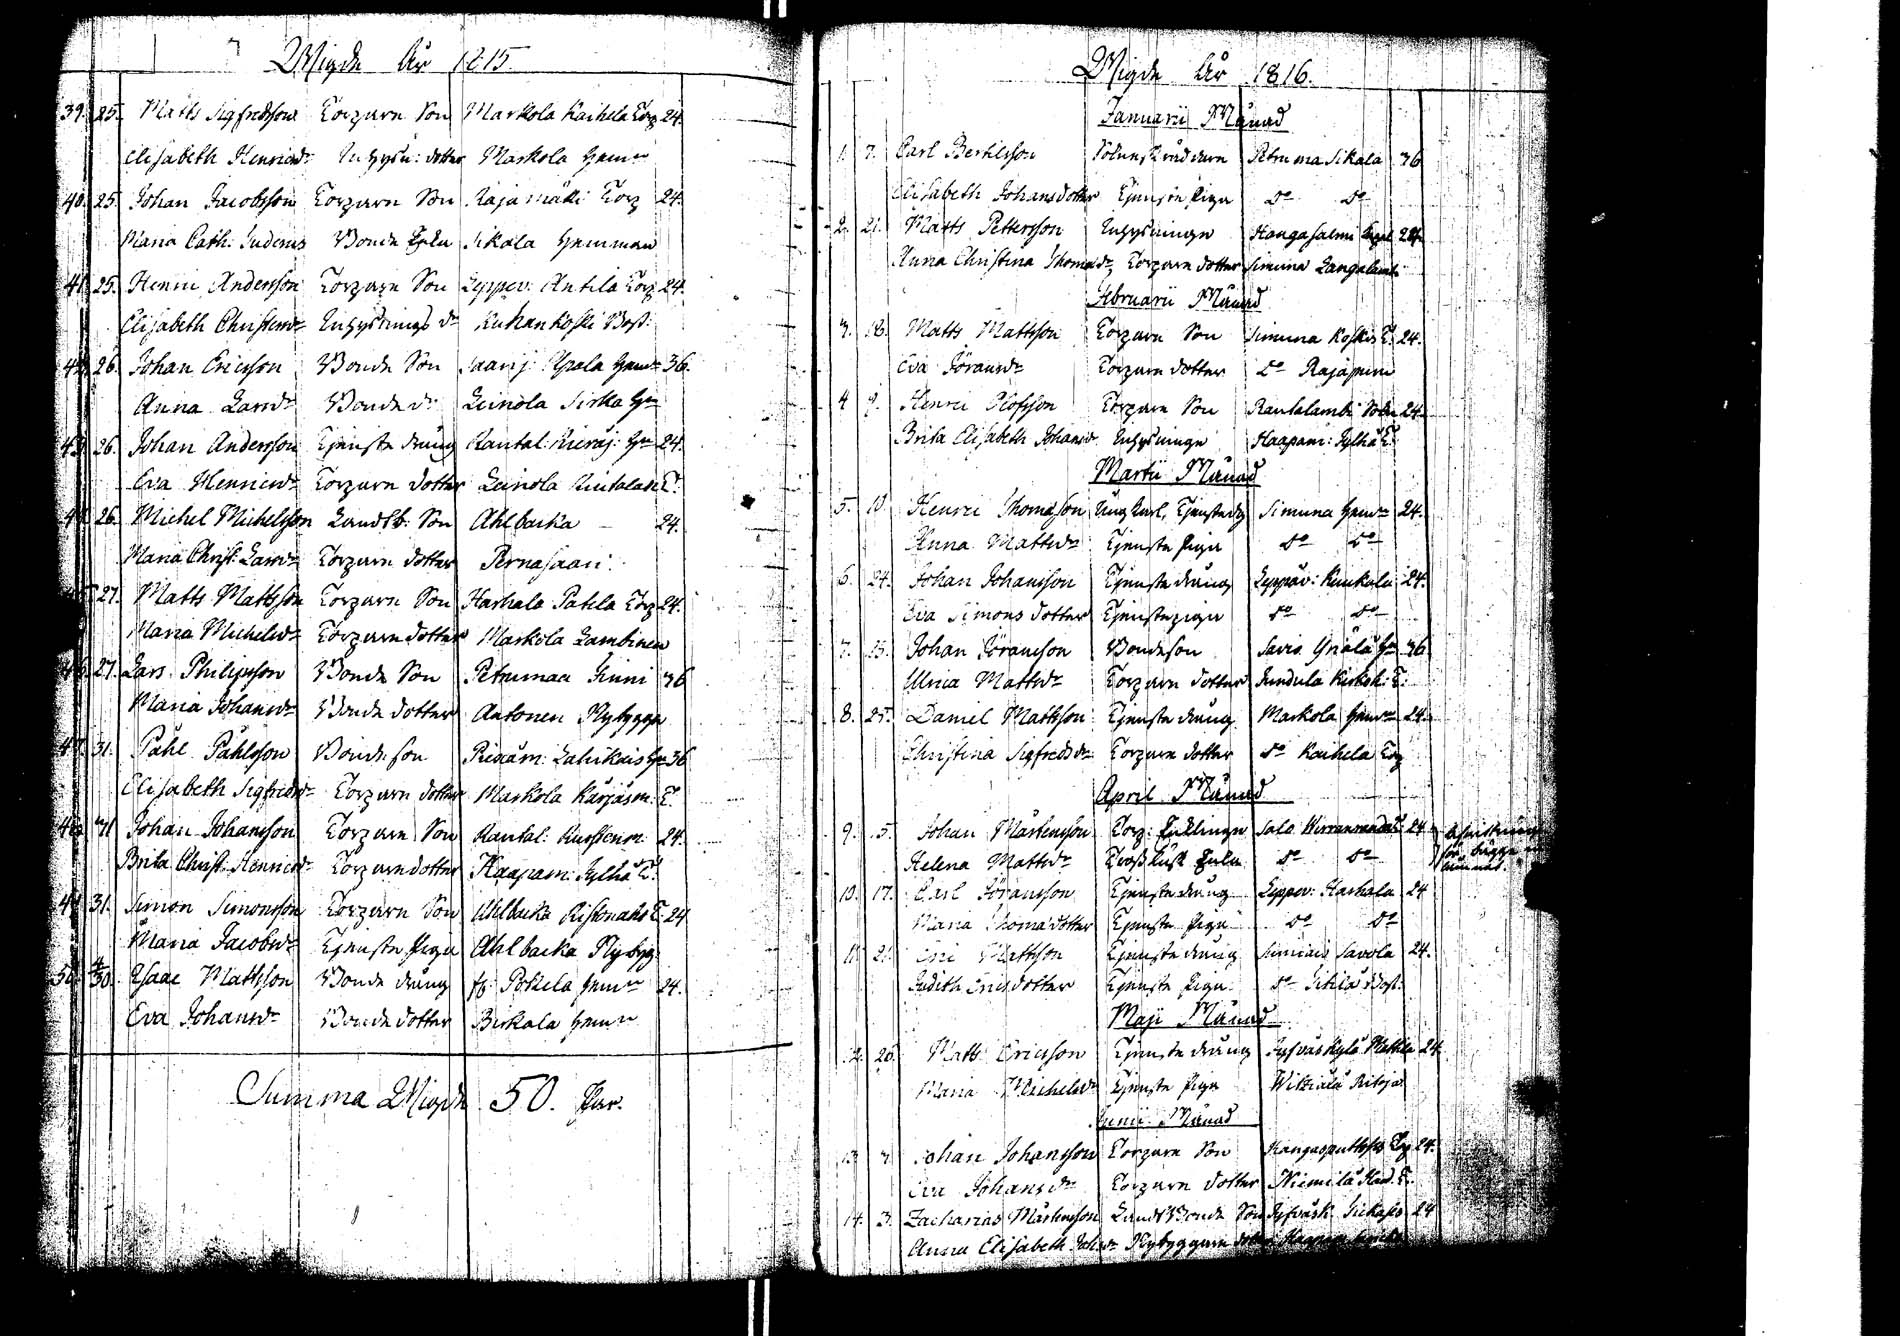 Wigde År 1815
39. 25. Matts Sigfredsson Torparn Son Markola Kaihela Torp 24.
Elisabeth Henricsdr Inhysn: dotter Markola Hemn
40. 25. Johan Jacobsson Torparn Son Rajamäki Torp 24.
Maria Cath: Judenus Bonde Enka Sikala Hemman
41. 25. Henric Andersson Torparn Son Leppev: Antila Torp 24.
Elisabeth Christersdr Inhysnings dr Kuhankoski Bost:
42. 26. Johan Ericsson Bonde Son Saarij: Hemn 36.
Anna Larsdr Bonde d: Leinola Sirka Hn
43. 26. Johan Andersson Tjenste dräng Rautal: Hn 24.
Eva Henricsdr Torparn dotter Leinola T:
44. 26. Michel Michelsson Landtb: Son Ahlbacka 24.
Maria Christ: Larsdr Torparn dotter Pernasaari
45. 27. Matts Mattsson Torparn Son Harhala Pahla Torp 24.
Maria Michelsdr Torparn dotter Markola Lambinen
46. 27. Lars Philipsson Bonde Son Petrumaa Kinni 36
Maria Johansdr Bonde dotter Antonen Nybygge
47. 31. Påhl Påhlsson Bonde son Lahikais Hn 36
Elisabeth Sigfredsdr Torparn dotter Markola Karjäsm: T.
48. 31 Johan Johansson Torparn Son Rautal: 24.
Brita Christ: Henricsdr Torparn dotter Haapam: Jylhä T:
49. 31. Simon Simonsson Torparn Son Ahlbacka Ristonaho T: 24
Maria Jacobsdr Tjenste Piga Ahlbacka Nybyg
50. 4/30. Isaac Mattsson Bonde dräng Pohkela Hemn 24.
Eva Johansdr Bonde dotter Birkala Hemn
Summa Wigde 50. Par.
Wigde År 1816.
Januarii Månad
1. 7. Carl Bertilsson Petruma Sikala 36
Elisabeth Johansdotter Tjenste Piga do do
2. 21. Matts Pettersson Inhysninge Hangasalmi 24.
Anna Christina Thomasdr Torparn dotter Simuna Langalambi
Februarii Månad
3. 18. Matts Mattsson Torparn Son Simuna Koskis T: 24.
Eva Göransdr Torparn dotter do Rajajärvi
4 9. Henric Olofsson Torparn Son Rautalambi 24.
Brita Elisabeth Johansdr Inhysninge Haapam: Jylhä T:
Martii Månad
5. 10. Henric Thomasson Ung Karl, Tjenstedg Simuna Hemn 24.
Anna Mattsdr Tjenste Piga do do
6. 24. Johan Johansson Tjenste dräng Leppäv: Kuukala 24.
Eva Simons dotter Tjenstepiga do do
7. 25. Johan Göransson Bondeson Savio Hn 36
Ulrica Mattsdr Torparn dotter Kirkoh: T:
8. 25. Daniel Mattsson Tjenste dräng Markola Hemn 24.
Christina Sigfredsdr Torparn dotter do Kaihela Torp
April Månad
9. 5. Johan Mårtensson Torp: Enklinge Salo T: 24.
Helena Mattsdr Enka do do
för bägge
10. 17. Carl Göransson Tjenste dräng Leppev: Harhala 24
Maria Thomasdotter Tjenste Piga do do
11. 21. Eric Mattsson Tjenste dräng Savola 24.
Judith Ericsdotter Tjenste Piga do Bost:
Maji Månad
12. 26. Matts Ericsson Tjenste dräng Jyfväskylä Mattila 24
Maria Michelsdr Tjenste Piga
Junii Månad
13. 3. Johan Johansson Torparn Son Torp 24.
Eva Johansdr Torparn dotter Niemilä T.
14. 3. Zacharias Mårtensson Landt Bonde Son Jyfväsk: 24
Anna Elisabeth Nybyggarn dotter